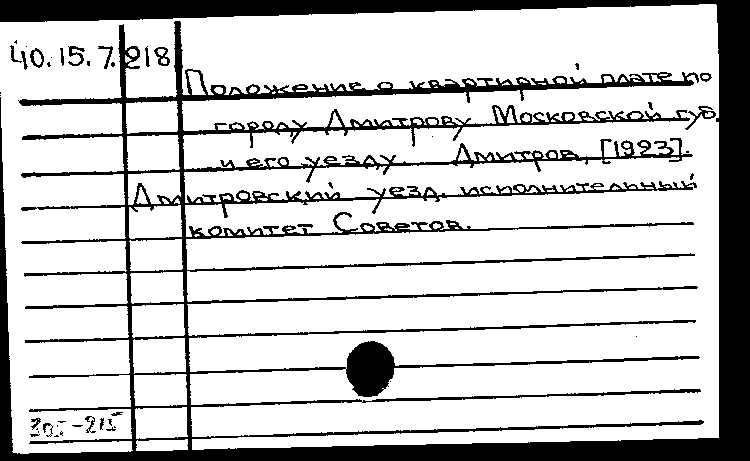 40.15.7.218
Положение о квартирной плате по
городу Дмитрову Московской губ.
и его уезду. Дмитров, [1923].
Дмитровский уезд. исполнительный
комитет Советов.
305-215